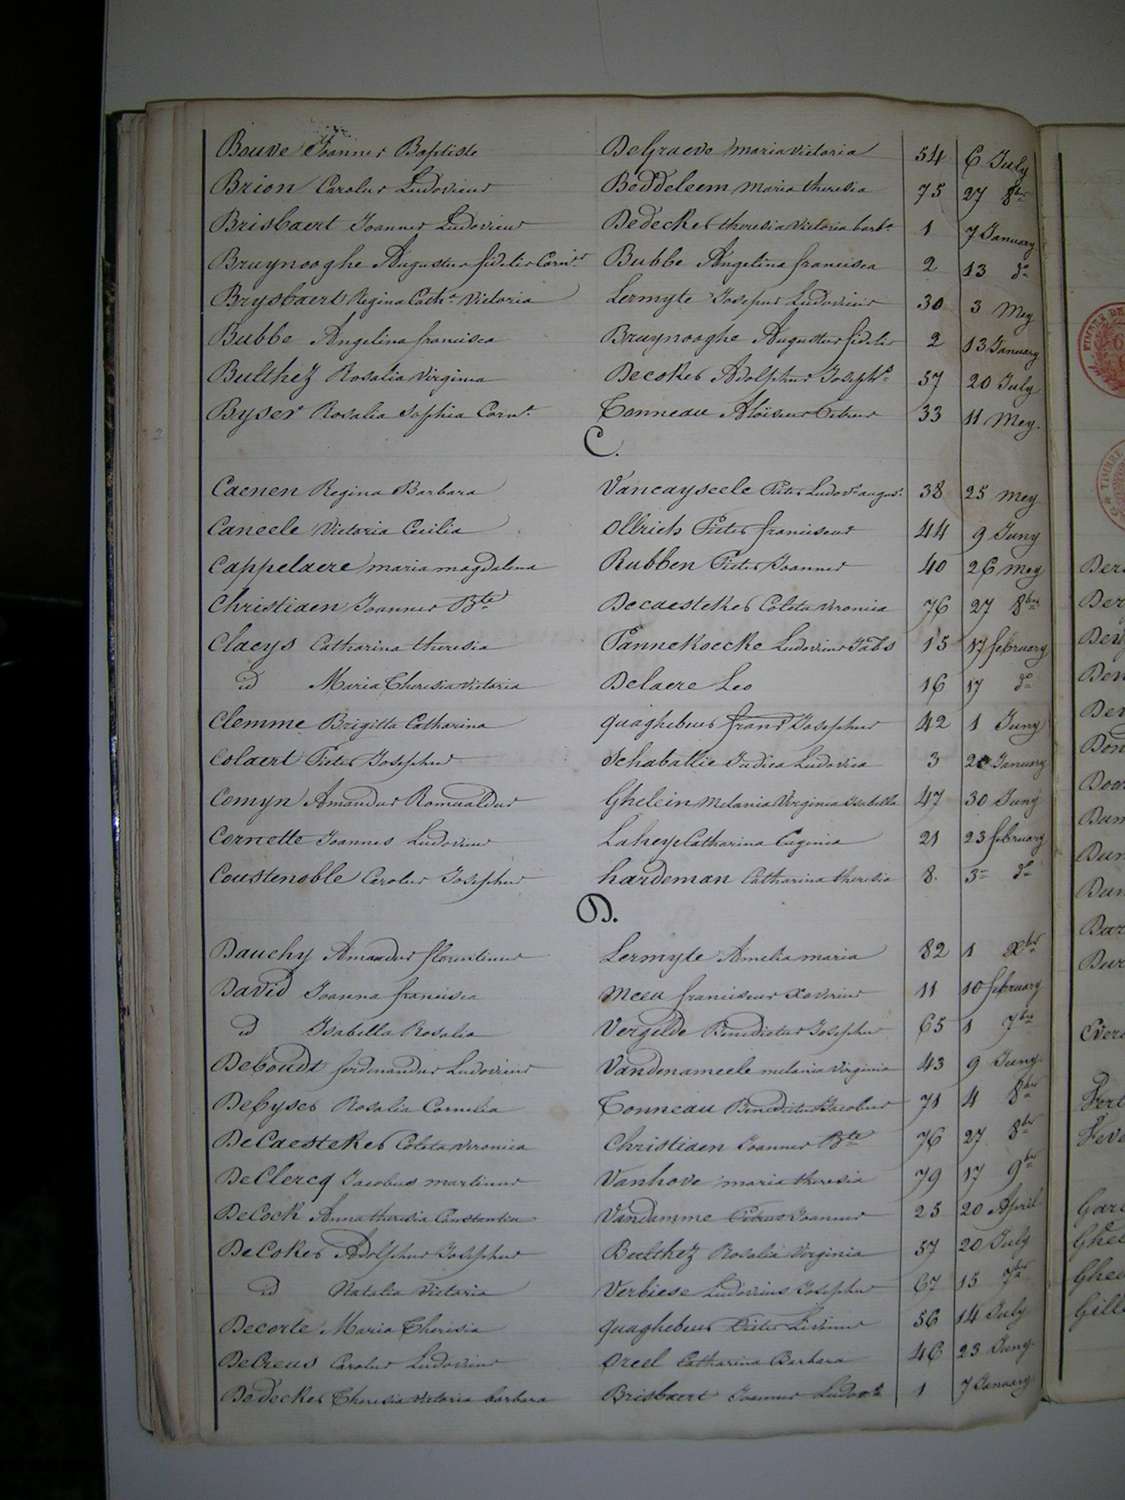 Bouve Joannes Baptiste DeGraeve maria victoria 54 6 July
Brion Carolus Ludovicus Beddeleem maria theresia 75 27 8bre
Brisbaert Joannes Ludovicus Dedecker theresia victoria barba 1 7 January
Bruynooghe Augustus fidelis Cornes Bubbe Angelina francisca 2 13 do
Brysbaert Regina Catha Victoria Lermyte Josephus Ludovicus 30 3 Mey
Bubbe Angelina francisca Bruynooghe Augustus fidelis 2 13 January
Bulthez Rosalia Virginia Decoker Adolphus Josephus 57 20 July
Byser Rosalia Sophia Corna Tonneau Aloisius Petrus 33 11 Mey.
C.
Caenen Regina Barbara Vancayseele Pieter Ludovs augus. 38 25 mey
Caneele Victoria Cecilia Ollrich Pieter franciscus 44 9 Juny
Cappelaere maria magdalena Rubben Pieter Joannes 40 26 mey
Christiaen Joannes Bte Decaesteker Coleta veronica 76 27 8bre
Claeys Catharina theresia Pannekoecke Ludovicus Jabs 15 17 february
id Maria Theresia victoria Delaere Leo 16 17 do
Clemme Brigitta Catharina quaghebeur frans Josephus 42 1 Juny
Colaert Pieter Josephus Schaballie Judica Ludovica 3 20 January
Comyn Amandus Romualdus Ghelein Melania Virginia Isabella 47 30 Juny
Cornette Joannes Ludovicus Laheye Catharina Eugenia 21 23 february
Coustenoble Carolus Josephus hardeman Catharina theresia 8. 3 do
D.
Dauchy Amandus florentinus Lermyte Amelia maria 82 1 Xber
David Joanna francisca Meeu franciscus Xaverius 11 10 february
id Isabella Rosalia Vergelde Benedictus Josephus 65 1 7bre
Deboudt ferdinandus Ludovicus Vandenameele melania virginia 43 9 Juny
Debyser Rosalia Cornelia Tonneau Benedictus Jacobus 71 4 8bre
DeCaesteker Coleta veronica Christiaen Joannes Bte 76 27 8bre
DeClercq Jacobus martinus Vanhove maria theresia 79 17 9bre
DeCock Anna theresia Constantia Vandamme Petrus Joannes 25 20 April
DeCoker Adolphus Josephus Bulthez Rosalia Virginia 57 20 July
id Natalia Victoria Verbiese Ludovicus Josephus 67 15 7bre
Decorte Maria Theresia quaghebeur Pieter Livinus 56 14 July
DeCreus Carolus Ludovicus Dreel Catharina Barbara 46 23 Juny
Dedecker Theresia victoria barbara Brisbaert Joannes Ludovic 1 7 January